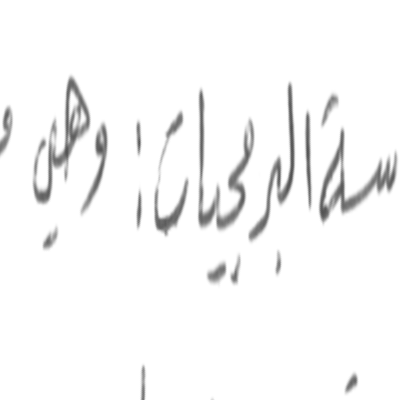 سة البرمجيات: وهي و